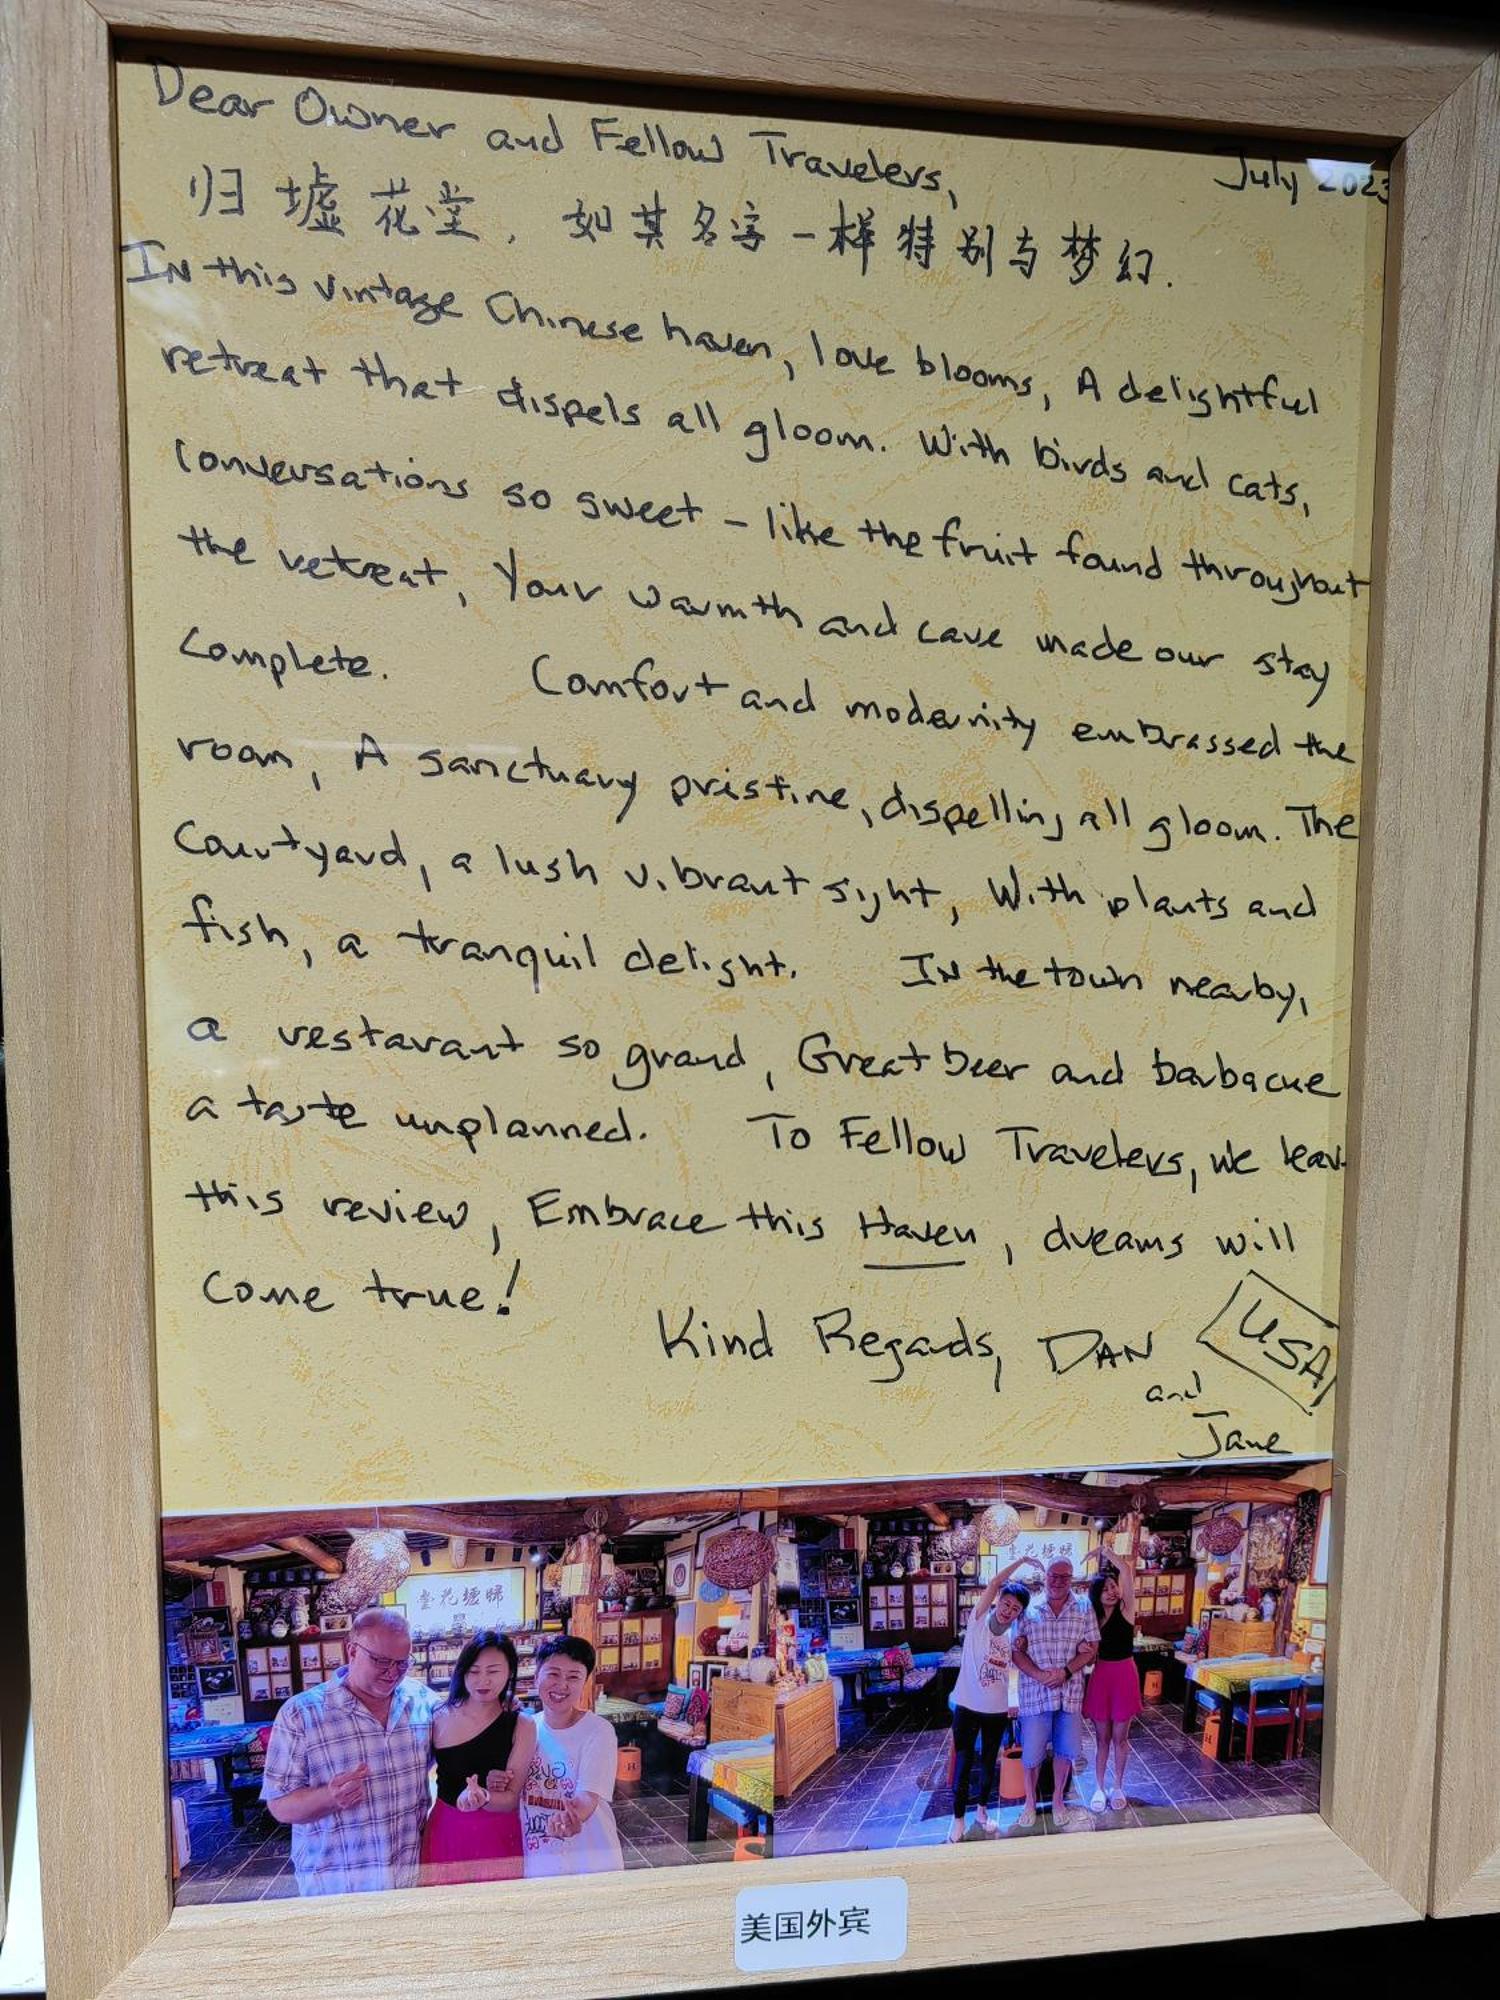 Dear Owner and Fellow Travelers,
July 2023
归墟花堂,如其名字一样特别与梦幻.
IN this vintage Chinese haven, love blooms, A delightful
retreat that dispels all gloom. With birds and cats,
Conversations so sweet - like the fruit found throughout
the retreat, Your warmth and care made our stay
Complete. Comfort and modernity embrassed the
room, A sanctuary pristine, dispelling all gloom. The
Courtyard, a lush vibrant sight, With plants and
fish, a tranquil delight. IN the town nearby,
a restarant so grand, Great beer and barbacue
a taste unplanned. To Fellow Travelers, we leav
this review, Embrace this Haven, dreams will
Come true!
Kind Regards, DAN USA
and
Jane
堂花墟歸
堂花墟歸
美国外宾